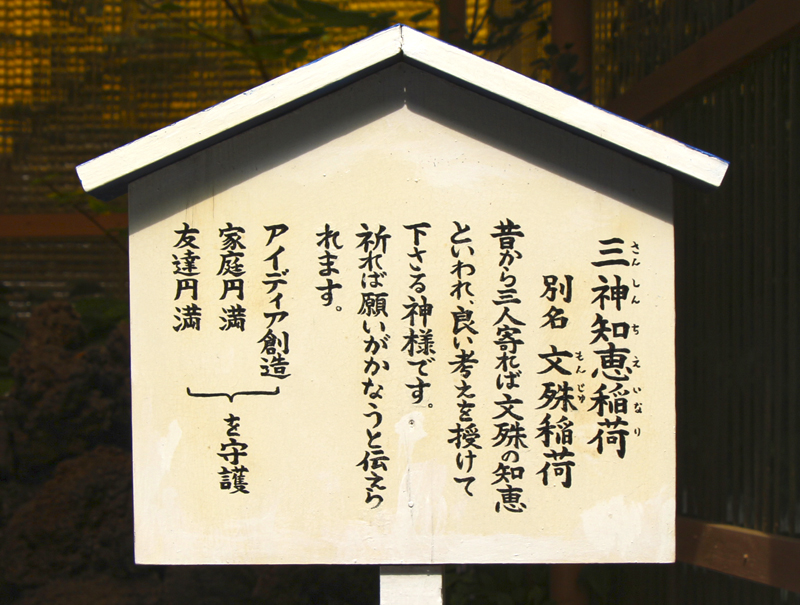 三神知恵稲荷
さんしんちえいなり
別名 文殊稲荷
もんじゅ
昔から三人寄れば文殊の知恵
といわれ、良い考えを授けて
下さる神様です。
祈れば願いがかなうと伝えら
れます。
アイディア創造
家庭円満
友達円満
を守護